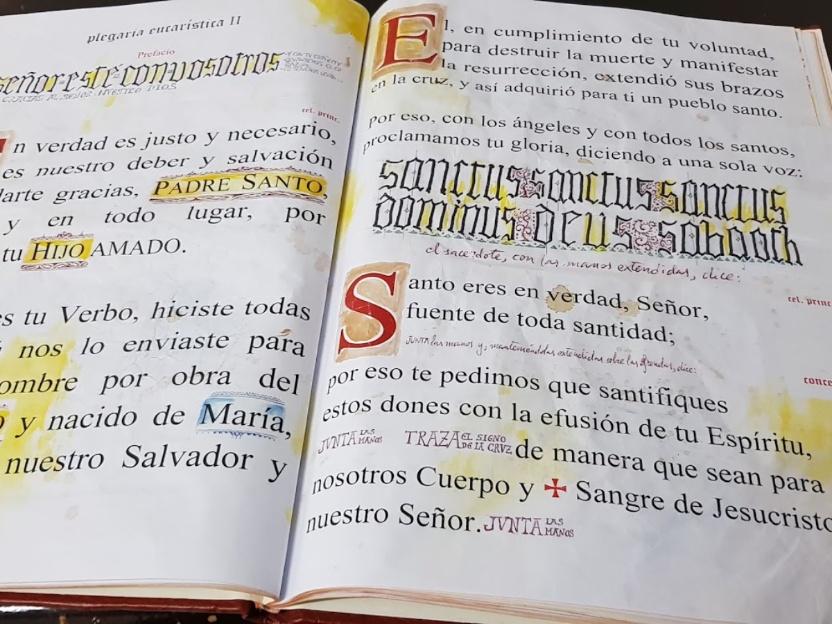 plegaria eucarística II
Prefacio
señor esté con vosotros
cel. princ.
n verdad es justo y necesario,
es nuestro deber y salvación
darte gracias, PADRE SANTO,
y en todo lugar, por
tu HIJO AMADO.
es tu Verbo, hiciste todas
nos lo enviaste para
hombre por obra del
y nacido de María,
nuestro Salvador y
El, en cumplimiento de tu voluntad,
para destruir la muerte y manifestar
la resurrección, extendió sus brazos
en la cruz, y así adquirió para ti un pueblo santo.
por eso, con los ángeles y con todos los santos,
proclamamos tu gloria, diciendo a una sola voz:
sanctus sanctus sanctus
dominus deus sabaoth
el sacerdote, con las manos extendidas, dice:
cel. princ
Santo eres en verdad, Señor,
fuente de toda santidad;
JUNTA las manos y, manteniéndolas extendidas sobre las ofrendas, dice:
conce
por eso te pedimos que santifiques
estos dones con la efusión de tu Espíritu,
JVNTA LAS MANOS TRAZA EL SIGNO DE LA CRVZ de manera que sean para
nosotros Cuerpo y ✠ Sangre de Jesucristo
nuestro Señor. JVNTA LAS MANOS